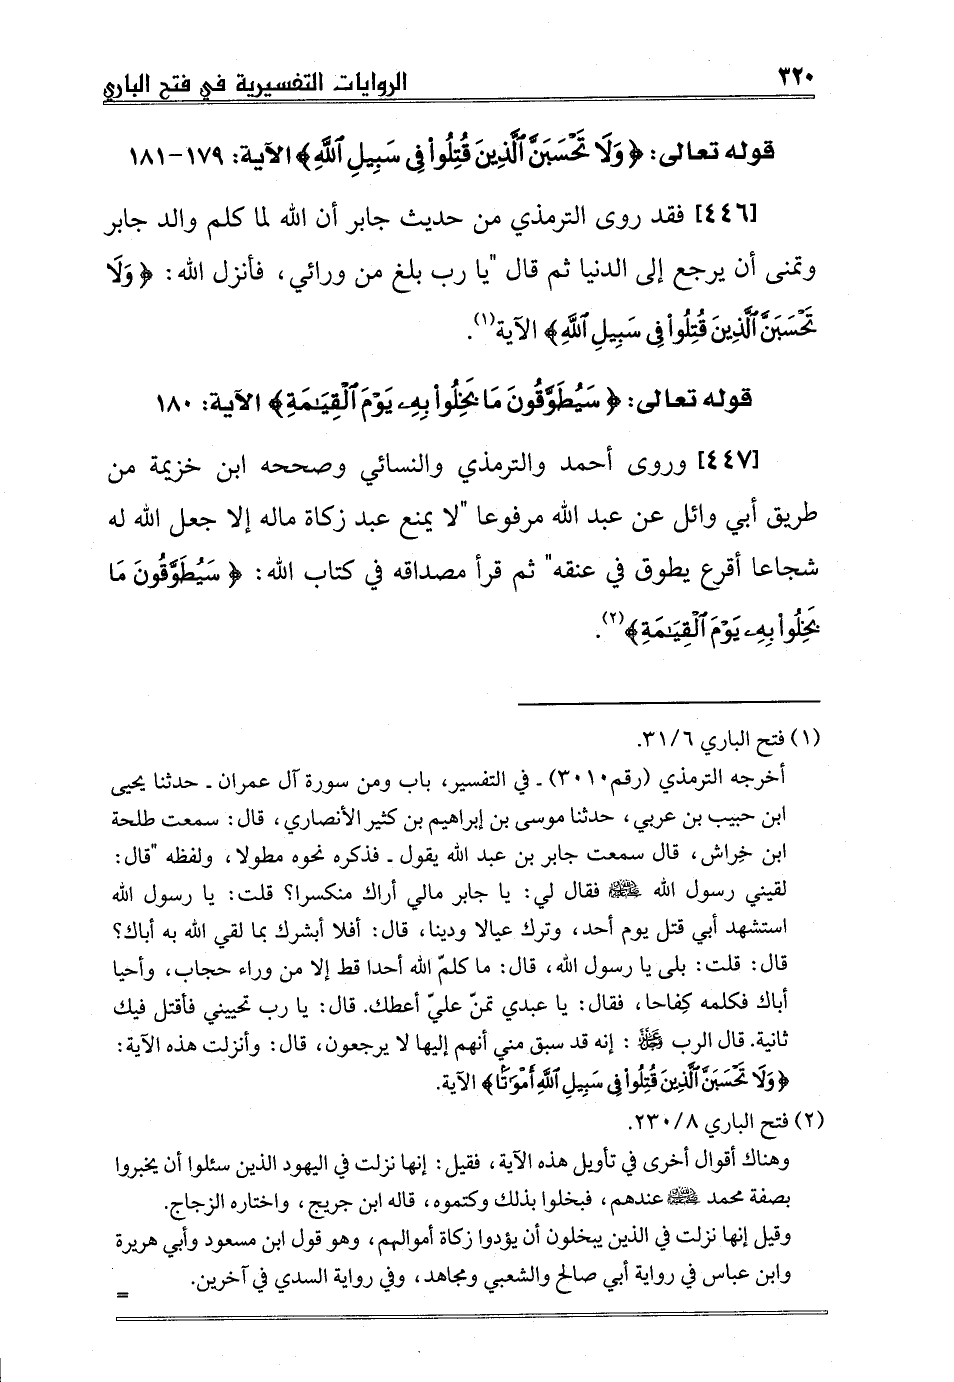 ٣٢٠
الروايات التفسيرية في فتح الباري
قوله تعالى: ﴿ وَلَا تَحْسَبَنَّ ٱلَّذِينَ قُتِلُوا۟ فِى سَبِيلِ ٱللَّهِ﴾ الآية: ١٧٩-١٨١
[٤٤٦] فقد روى الترمذي من حديث جابر أن الله لما كلم والد جابر
وتمنى أن يرجع إلى الدنيا ثم قال "يا رب بلغ من ورائي، فأنزل الله: ﴿ وَلَا
تَحْسَبَنَّ ٱلَّذِينَ قُتِلُوا۟ فِى سَبِيلِ ٱللَّهِ﴾ الآية(١).
قوله تعالى: ﴿ سَيُطَوَّقُونَ مَا بَخِلُوا۟ بِهِۦ يَوْمَ ٱلْقِيَـٰمَةِ﴾ الآية: ١٨٠
[٤٤٧] وروى أحمد والترمذي والنسائي وصححه ابن خزيمة من
طريق أبي وائل عن عبد الله مرفوعا "لا يمنع عبد زكاة ماله إلا جعل الله له
شجاعا أقرع يطوق في عنقه" ثم قرأ مصداقه في كتاب الله: ﴿ سَيُطَوَّقُونَ مَا
بَخِلُوا۟ بِهِۦ يَوْمَ ٱلْقِيَـٰمَةِ﴾(٢).
(١) فتح الباري ٣١/٦.
أخرجه الترمذي (رقم٣٠١٠) ـ في التفسير، باب ومن سورة آل عمران ـ حدثنا يحيى
ابن حبيب بن عربي، حدثنا موسى بن إبراهيم بن كثير الأنصاري، قال: سمعت طلحة
ابن خِراش، قال سمعت جابر بن عبد الله يقول ـ فذكره نحوه مطولا، ولفظه "قال:
لقيني رسول الله ﷺ فقال لي: يا جابر مالي أراك منكسرا؟ قلت: يا رسول الله
استشهد أبي قتل يوم أحد، وترك عيالا ودينا، قال: أفلا أبشرك بما لقي الله به أباك؟
قال: قلت: بلى يا رسول الله، قال: ما كلمّ الله أحدا قط إلا من وراء حجاب، وأحيا
أباك فكلمه كِفاحا، فقال: يا عبدي تمنّ عليّ أعطك. قال: يا رب تحييني فأقتل فيك
ثانية. قال الرب ﷻ : إنه قد سبق مني أنهم إليها لا يرجعون، قال: وأنزلت هذه الآية:
﴿ وَلَا تَحْسَبَنَّ ٱلَّذِينَ قُتِلُوا۟ فِى سَبِيلِ ٱللَّهِ أَمْوَٰتًۢا﴾ الآية.
(٢) فتح الباري ٢٣٠/٨.
وهناك أقوال أخرى في تأويل هذه الآية، فقيل: إنها نزلت في اليهود الذين سئلوا أن يخبروا
بصفة محمد ﷺ عندهم، فبخلوا بذلك وكتموه، قاله ابن جريج، واختاره الزجاج.
وقيل إنها نزلت في الذين يبخلون أن يؤدوا زكاة أموالهم، وهو قول ابن مسعود وأبي هريرة
وابن عباس في رواية أبي صالح والشعبي ومجاهد، وفي رواية السدي في آخرين.
=